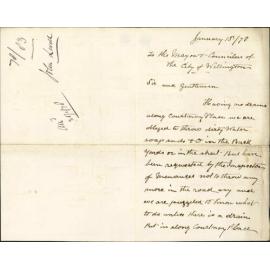 January 15th/78
To the Mayor & Councilors
of the City of Wellington
Sir and Gentlemen
Having no drains
along Courtenay Place we
are obliged to throw dirty Water
soap suds &c in the Back
Yards or in the street But have
been requested by the Inspector
of Nuisances not to throw any
more in the road any what
we are puzzled to know what
to do unless there is a drain
Put in along Courtenay Place
78/83
John Luke